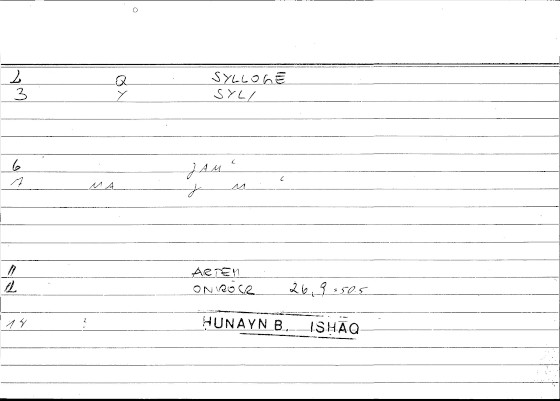 2 Q SYLLOGE
3 Y SYL/
6 ǧAMʿ
7 MA ǧ M ʿ
11 ARTEM
12 ONIROCR 26,9 = 505
14 : HUNAYN B. ISHĀQ